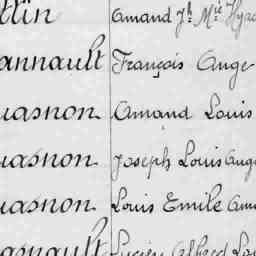 Amand Jh Mie
annault François Ange
uasnon Amand Louis
uasnon Joseph Louis Aug
uasnon Louis Emile Am
Lucien Alfred Lou